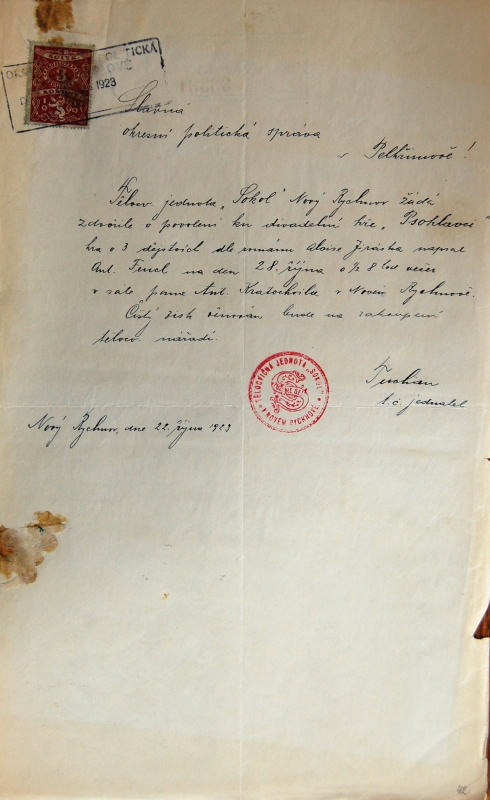 KOLEK
3
1923
Slavná
okresní politická správa
v Pelhřimově!
Tělocv. jednota „Sokol" Nový Rychnov žádá
zdvořile o povolení ku divadelní hře „Psohlavci"
hra o 3 dějstvích dle románu Aloise Jiráska napsal
Ant. Fencl na den 28. října o ½ 8 hod večer
v sále pana Ant. Kratochvíla v Novém Rychnově.
Čistý zisk věnován bude na zakoupení
tělocv. nářadí.
TĚLOCVIČNÁ JEDNOTA „SOKOL"
V NOVÉM RYCHNOVĚ
t. č. jednatel
Nový Rychnov, dne 22. října 1923
42